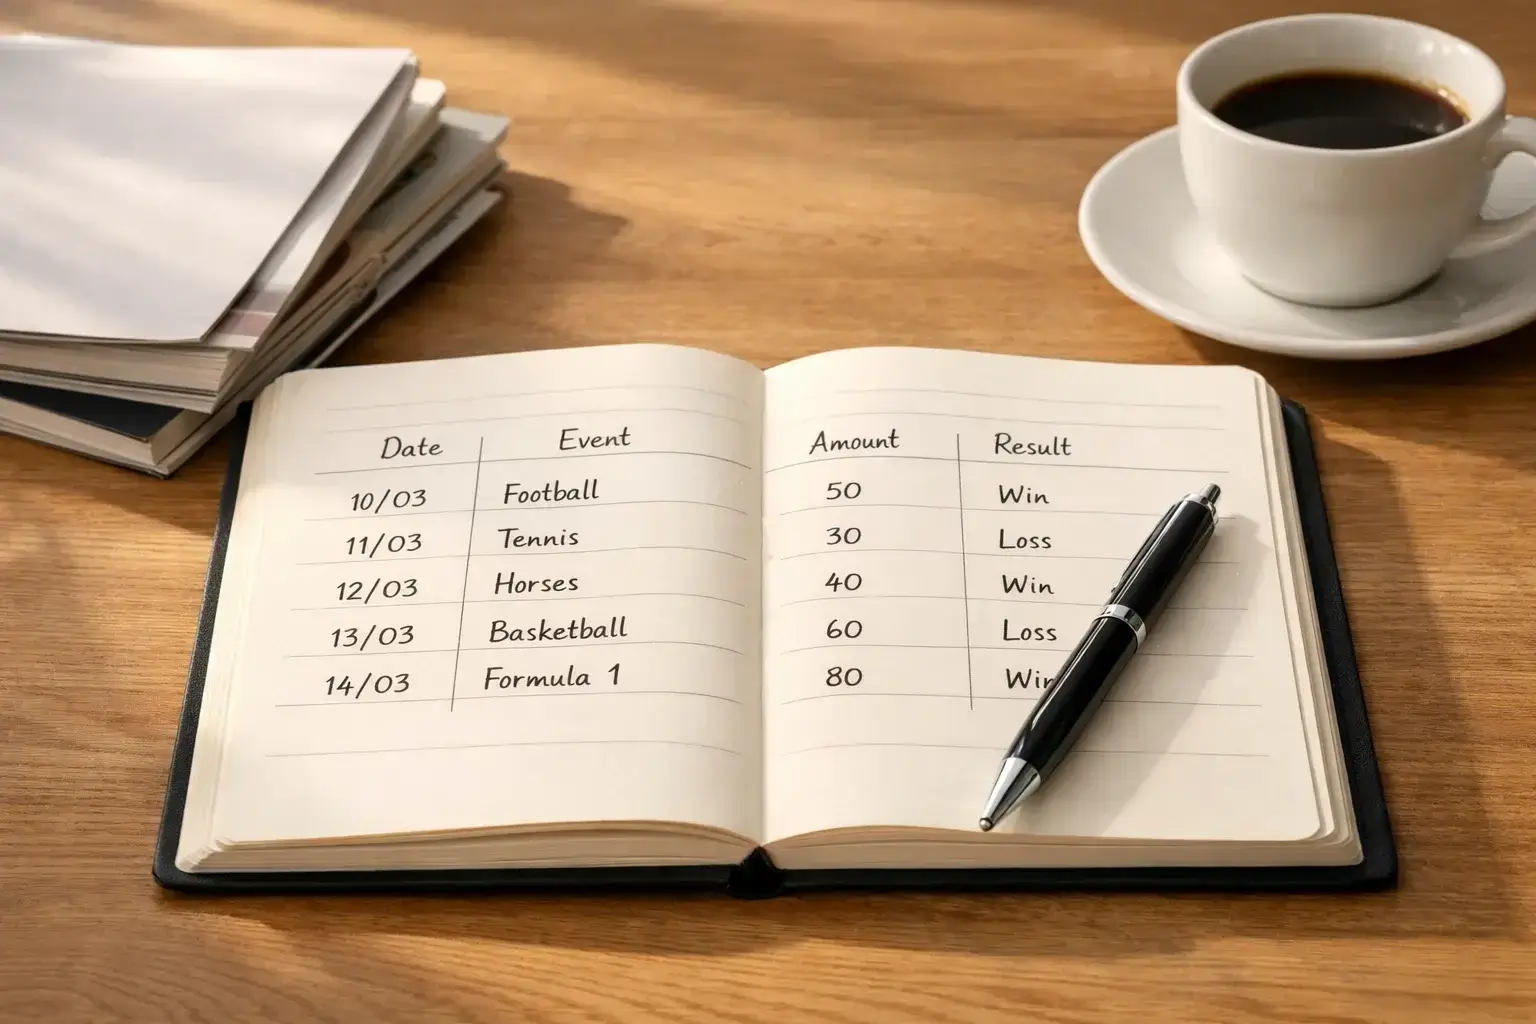 Date Event Amount Result
10/03 Football 50 Win
11/03 Tennis 30 Loss
12/03 Horses 40 Win
13/03 Basketball 60 Loss
14/03 Formula 1 80 Win